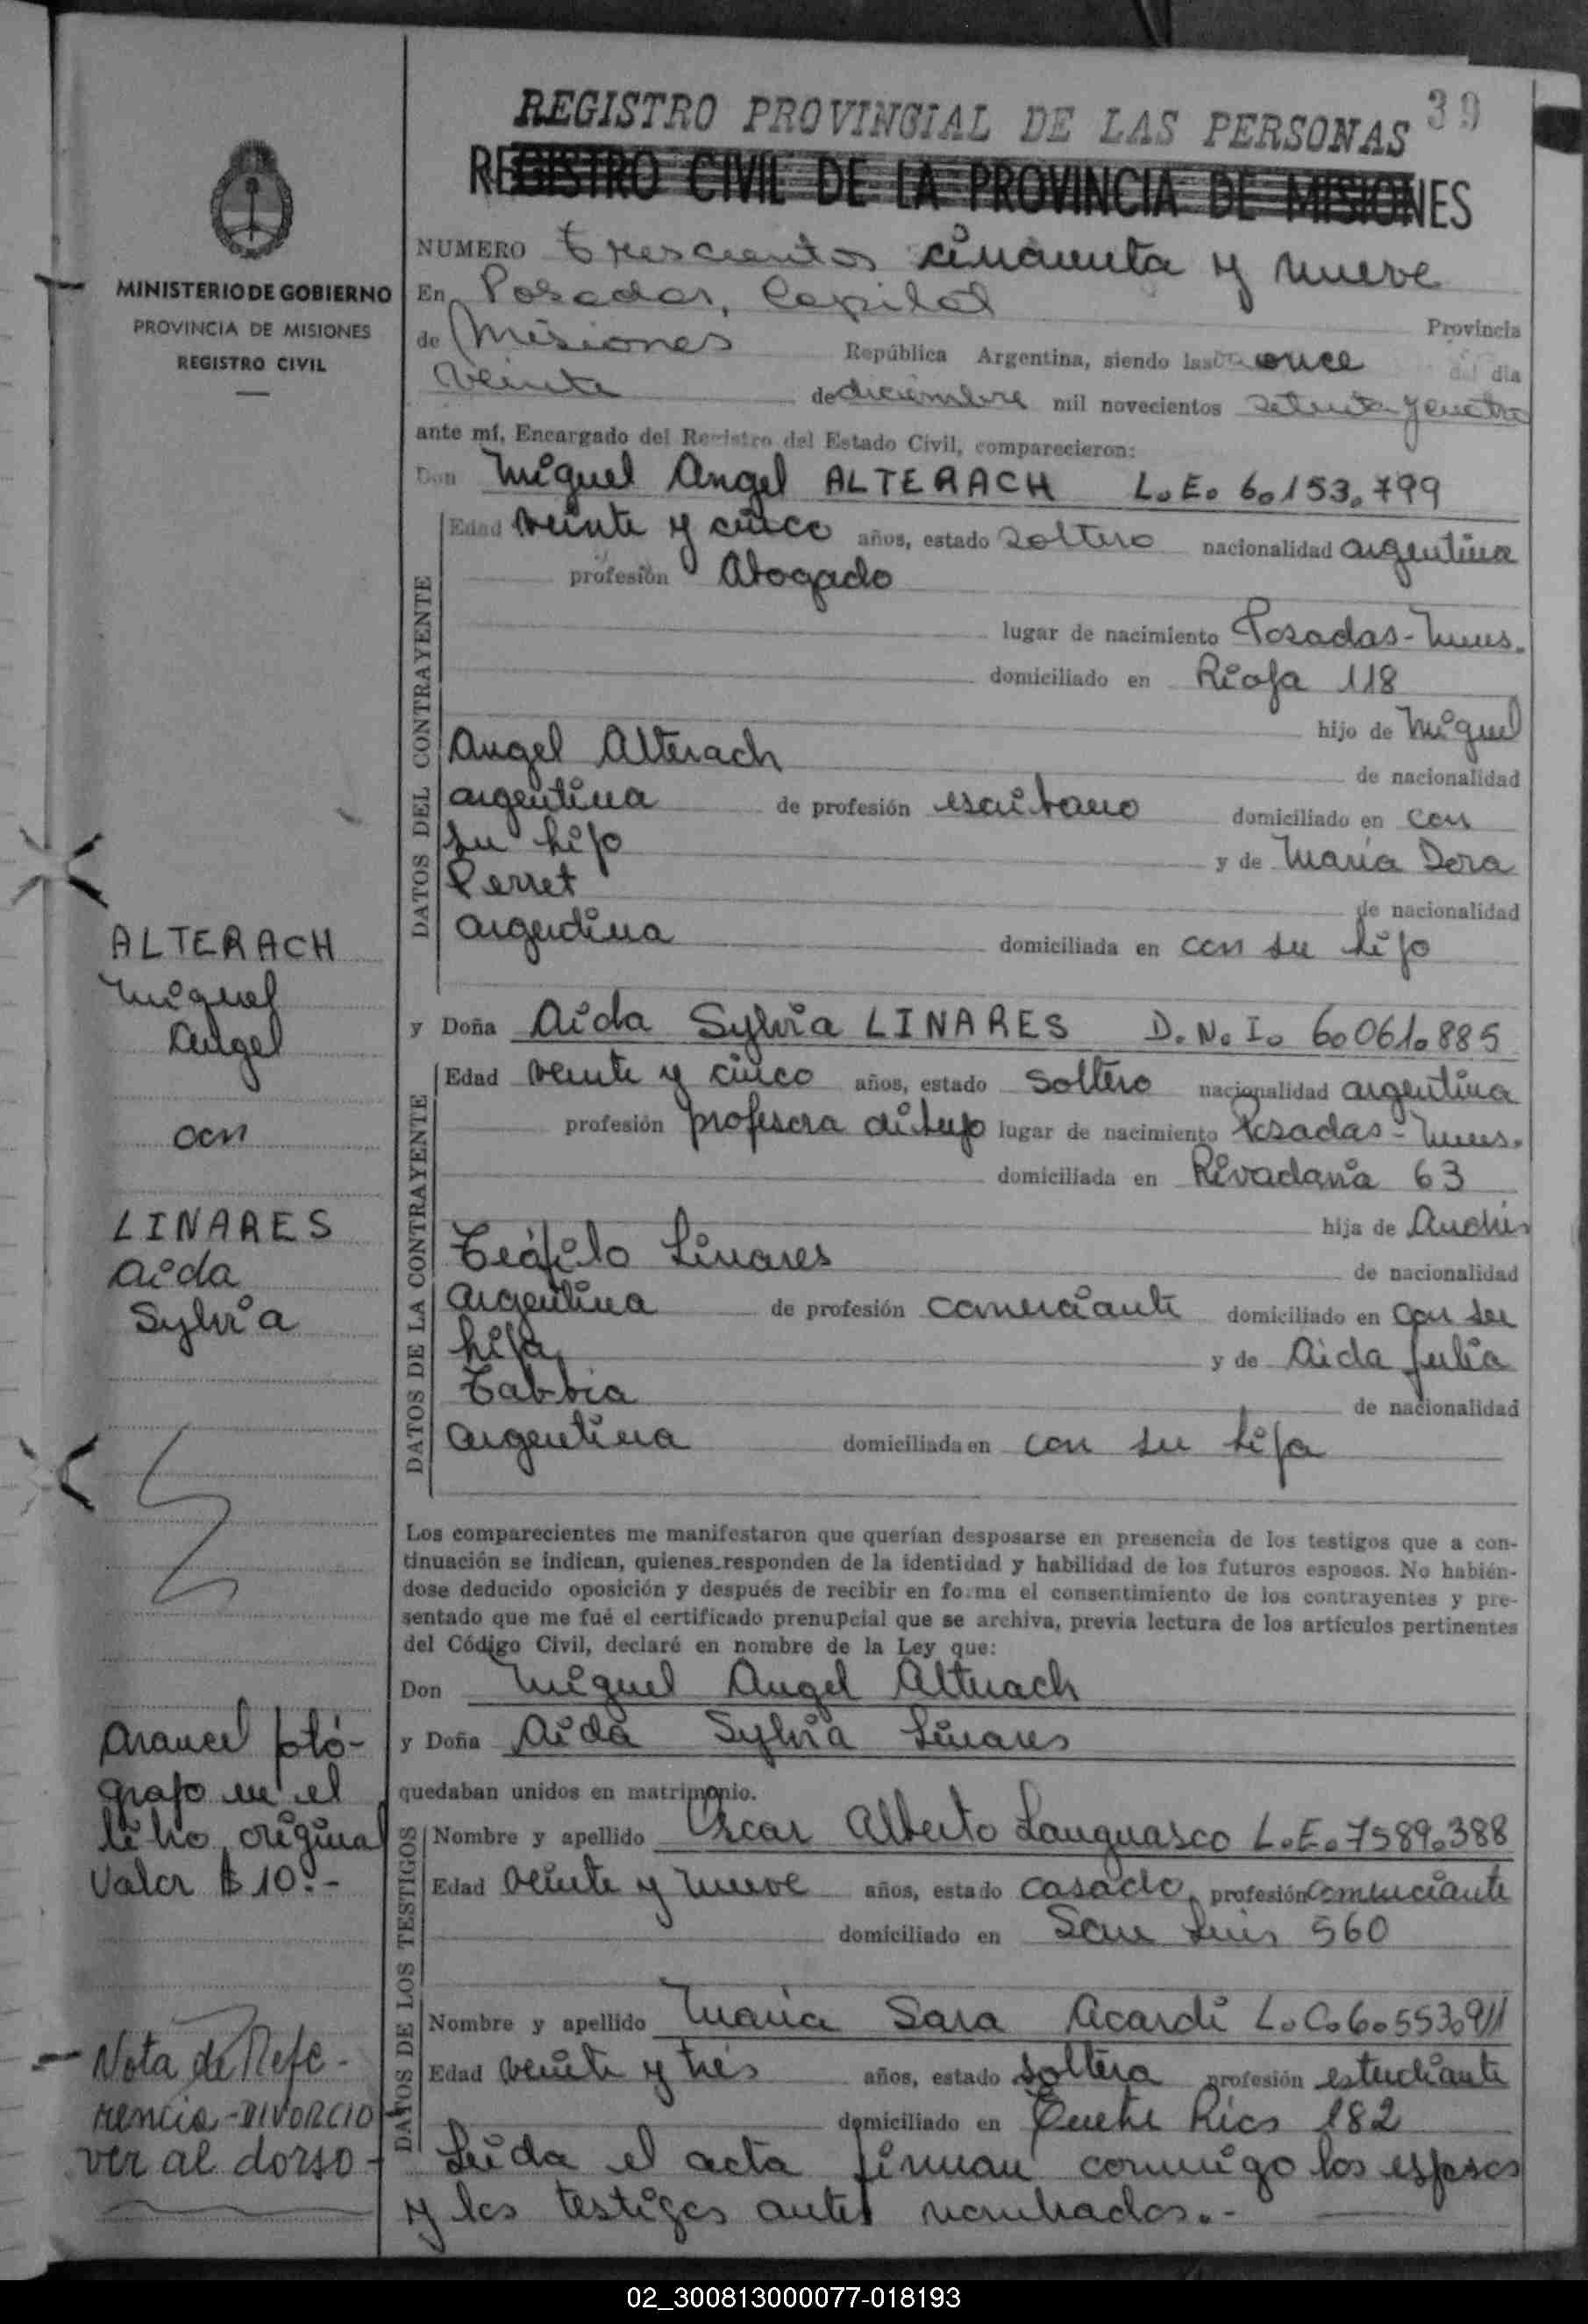 REGISTRO PROVINCIAL DE LAS PERSONAS
39
REGISTRO CIVIL DE LA PROVINCIA DE MISIONES
MINISTERIO DE GOBIERNO
PROVINCIA DE MISIONES
REGISTRO CIVIL
NUMERO trescientos cincuenta y nueve
En Posadas, Capital
Provincia
de Misiones República Argentina, siendo las once del día
veinte de diciembre mil novecientos setenta y cuatro
ante mí, Encargado del Registro del Estado Civil, comparecieron:
Don Miguel Angel ALTERACH L.E. 6.153.799
DATOS DEL CONTRAYENTE
Edad veinte y cinco años, estado soltero nacionalidad argentina
profesión Abogado
lugar de nacimiento Posadas-Mnes.
domiciliado en Rioja 118
hijo de Miguel
Angel Alterach
de nacionalidad
argentina de profesión escribano domiciliado en con
su hijo y de María Dora
Perret
de nacionalidad
argentina domiciliada en con su hijo
ALTERACH
Miguel
Angel
con
LINARES
Aida
Sylvia
y Doña Aida Sylvia LINARES D.N.I. 6.061.885
DATOS DE LA CONTRAYENTE
Edad veinte y cinco años, estado soltero nacionalidad argentina
profesión profesora lugar de nacimiento Posadas-Mnes.
domiciliada en Rivadavia 63
hija de Andrés
Teófilo Linares
de nacionalidad
Argentina de profesión comerciante domiciliado en con su
hija y de Aida Julia
Tabbia
de nacionalidad
argentina domiciliada en con su hija
Los comparecientes me manifestaron que querían desposarse en presencia de los testigos que a con-
tinuación se indican, quienes responden de la identidad y habilidad de los futuros esposos. No habién-
dose deducido oposición y después de recibir en forma el consentimiento de los contrayentes y pre-
sentado que me fué el certificado prenupcial que se archiva, previa lectura de los artículos pertinentes
del Código Civil, declaré en nombre de la Ley que:
Don Miguel Angel Alterach
y Doña Aida Sylvia Linares
quedaban unidos en matrimonio.
Arancel fotó-
grafo en el
libro original
Valor $ 10.-
DATOS DE LOS TESTIGOS
Nombre y apellido Oscar Alberto Languasco L.E. 7589.388
Edad veinte y nueve años, estado casado, profesión comerciante
domiciliado en San Luis 560
DATOS DE LOS TESTIGOS
Nombre y apellido María Sara Acardi L.C. 6.553.911
Edad veinte y tres años, estado soltera profesión estudiante
domiciliado en Entre Ríos 182
Leída el acta firman conmigo los esposos
y los testigos antes nombrados.-
Nota de Refe-
rencia-DIVORCIO
ver al dorso-
02_300813000077-018193